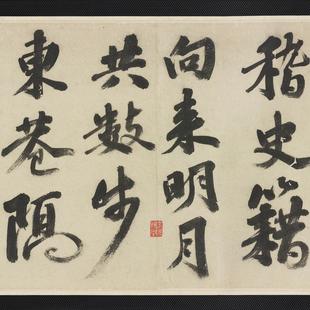 稽史籍
向来明月
共數步
東巷隔